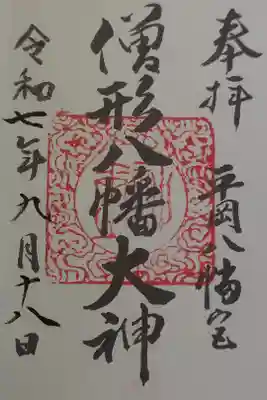 奉拝
平岡八幡宮
僧形八幡大神
令和七年九月十八日